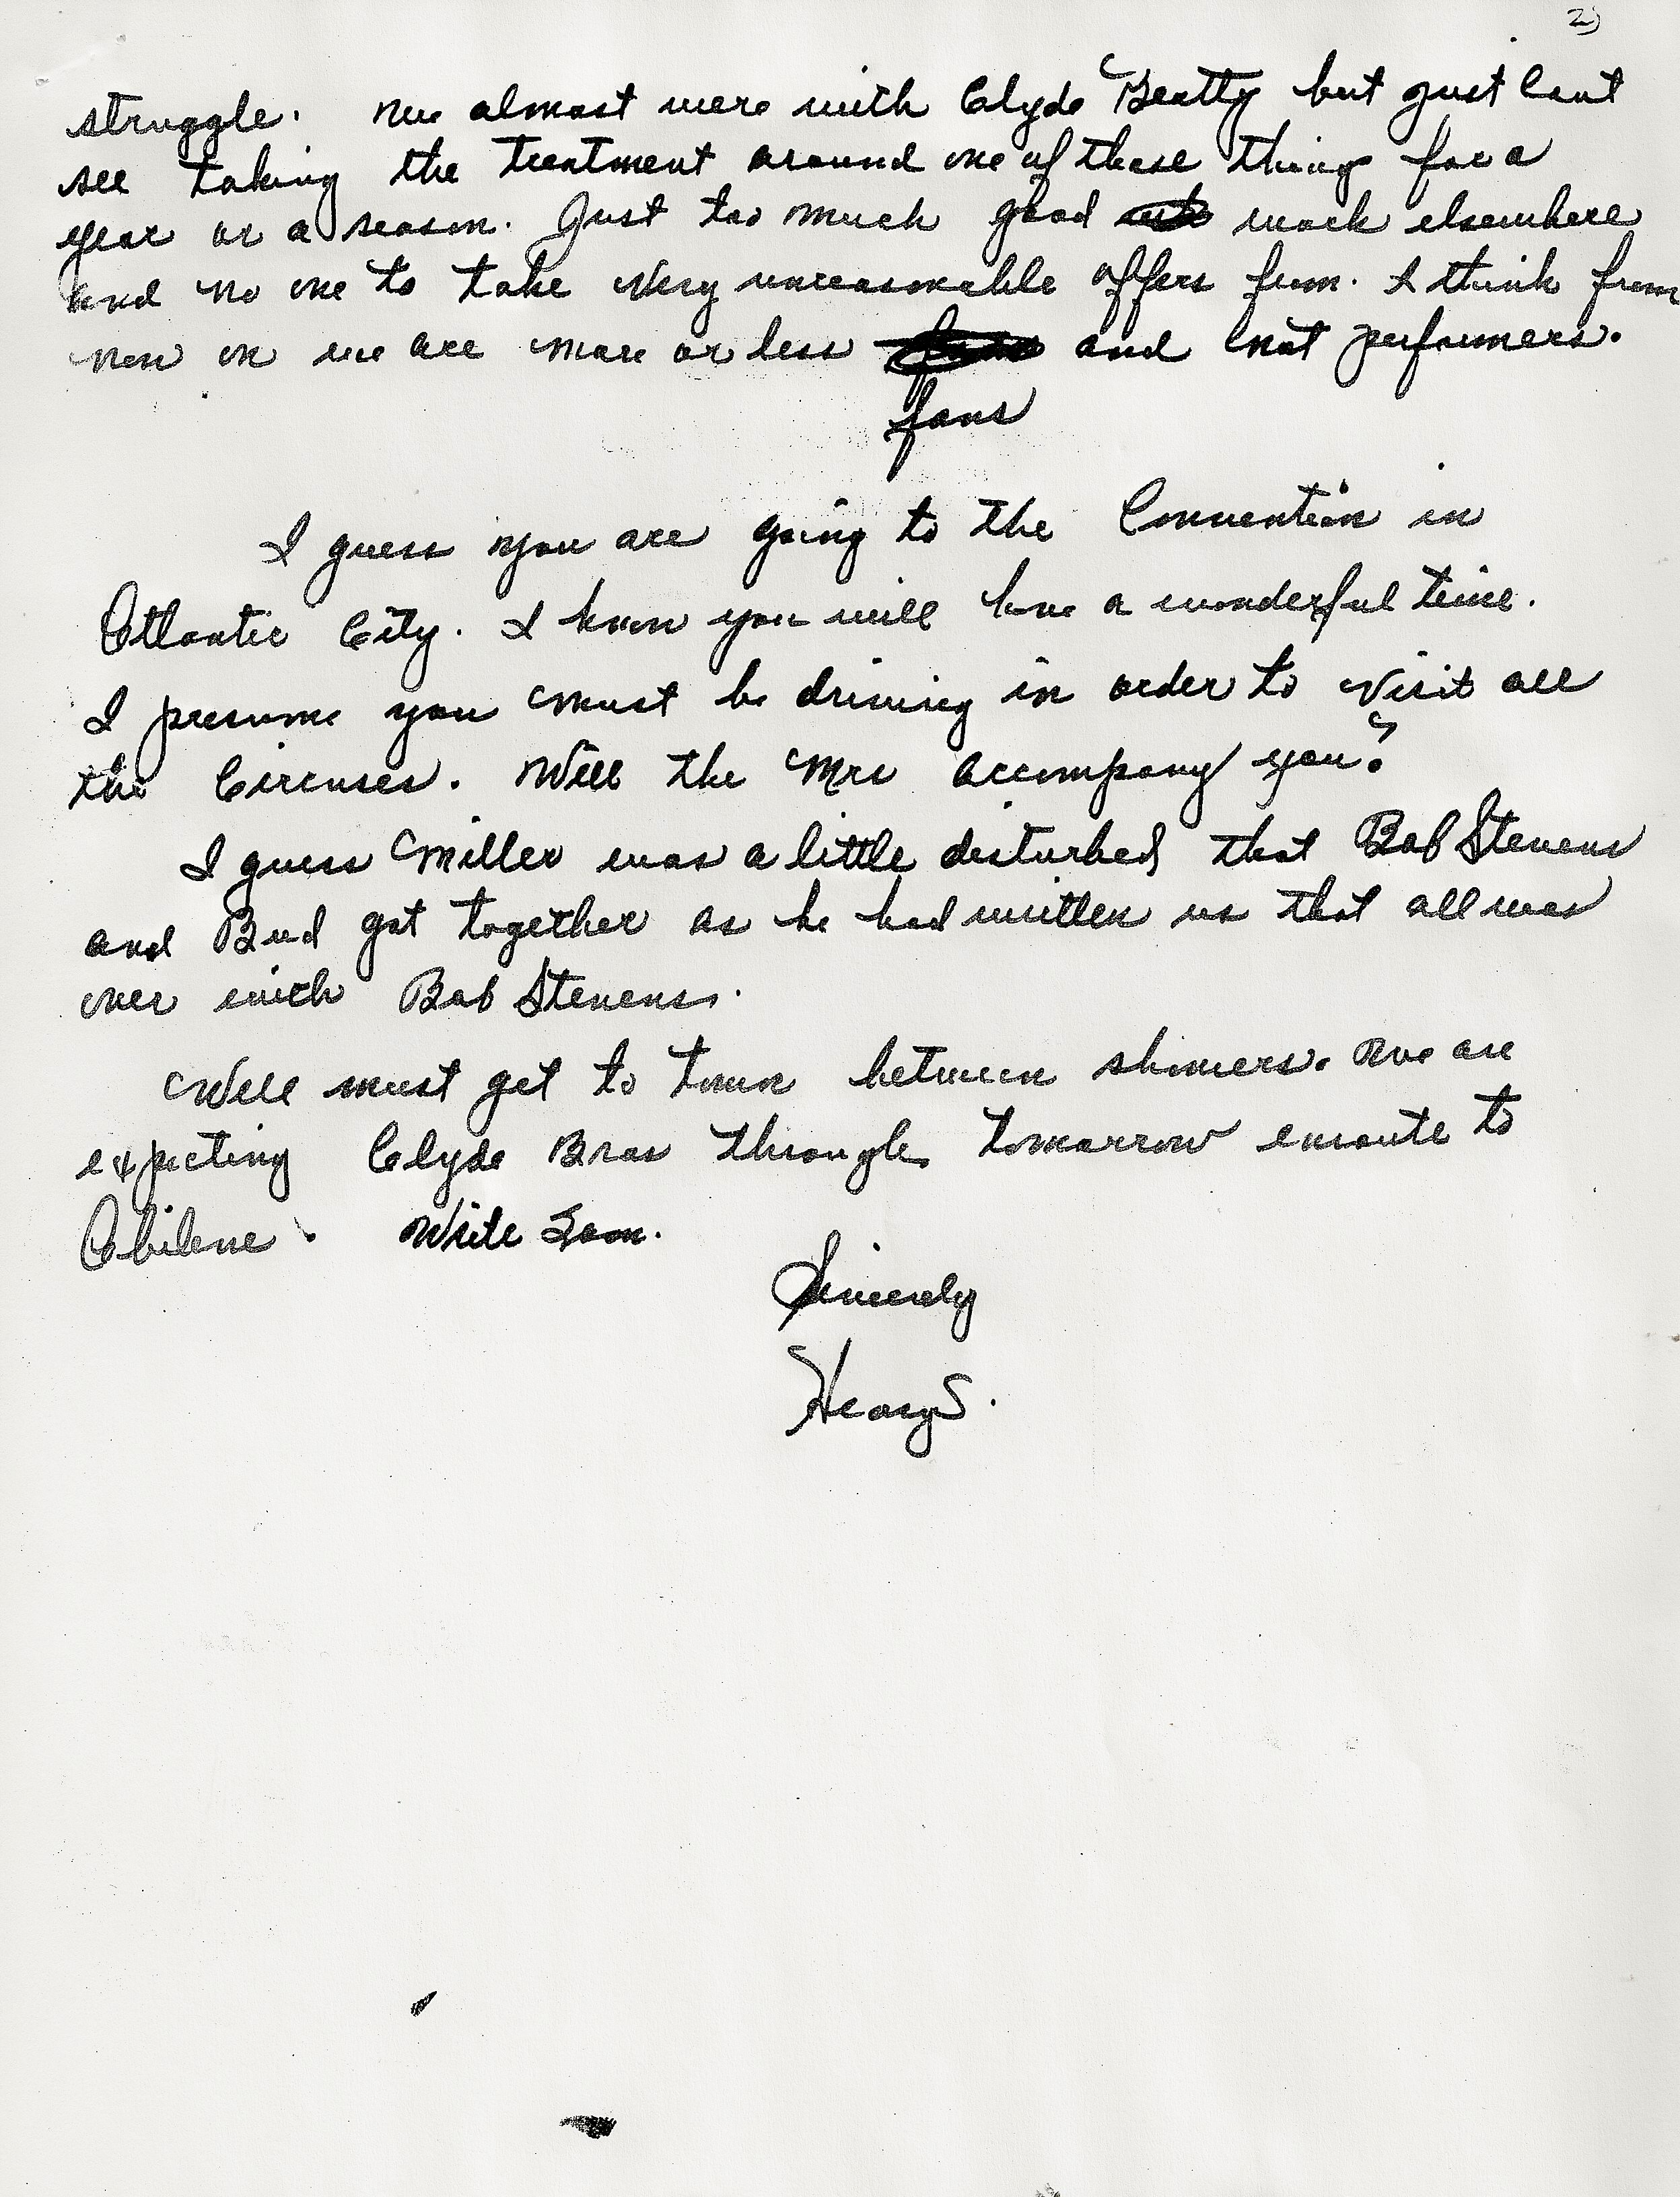 2)
struggle. We almost were with Clyde Beatty but just cant
see taking the treatment around one of these things for a
year or a season. Just too much good work elsewhere
and no one to take very unreasonable offers from. I think from
now on we are more or less and not performers.
fans
I guess you are going to the Convention in
Atlantic City. I know you will have a wonderful time.
I presume you must be driving in order to visit all
the Circuses. Will the Mrs accompany you?
I guess Miller was a little disturbed that Bob Stevens
and Bud got together as he had written us that all was
over with Bob Stevens.
Well must get to town between showers. We are
expecting Clyde Bros through tomorrow enroute to
Abilene. Write Soon.
Sincerely